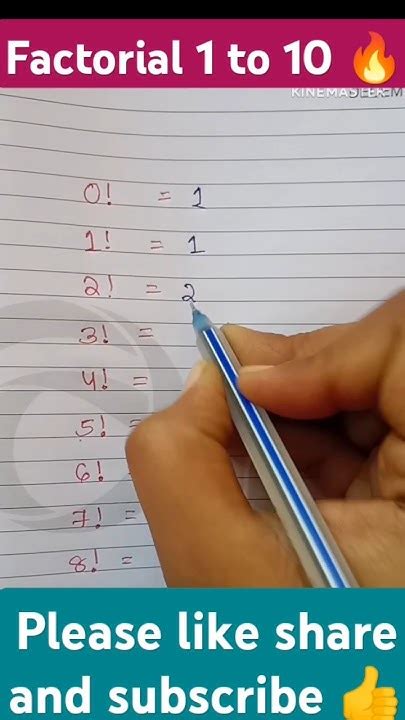 Factorial 1 to 10 🔥
KINEMASTER
0! = 1
1! = 1
2! = 2
3! =
4! =
5! =
6! =
7! =
8! =
Please like share
and subscribe 👍